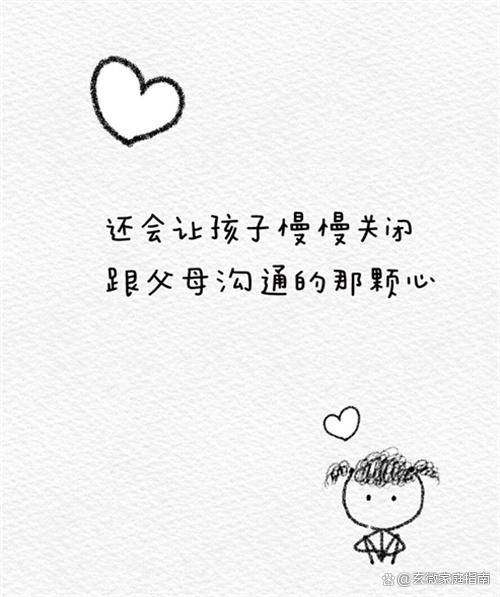 还会让孩子慢慢关闭
跟父母沟通的那颗心
玄微家庭指南